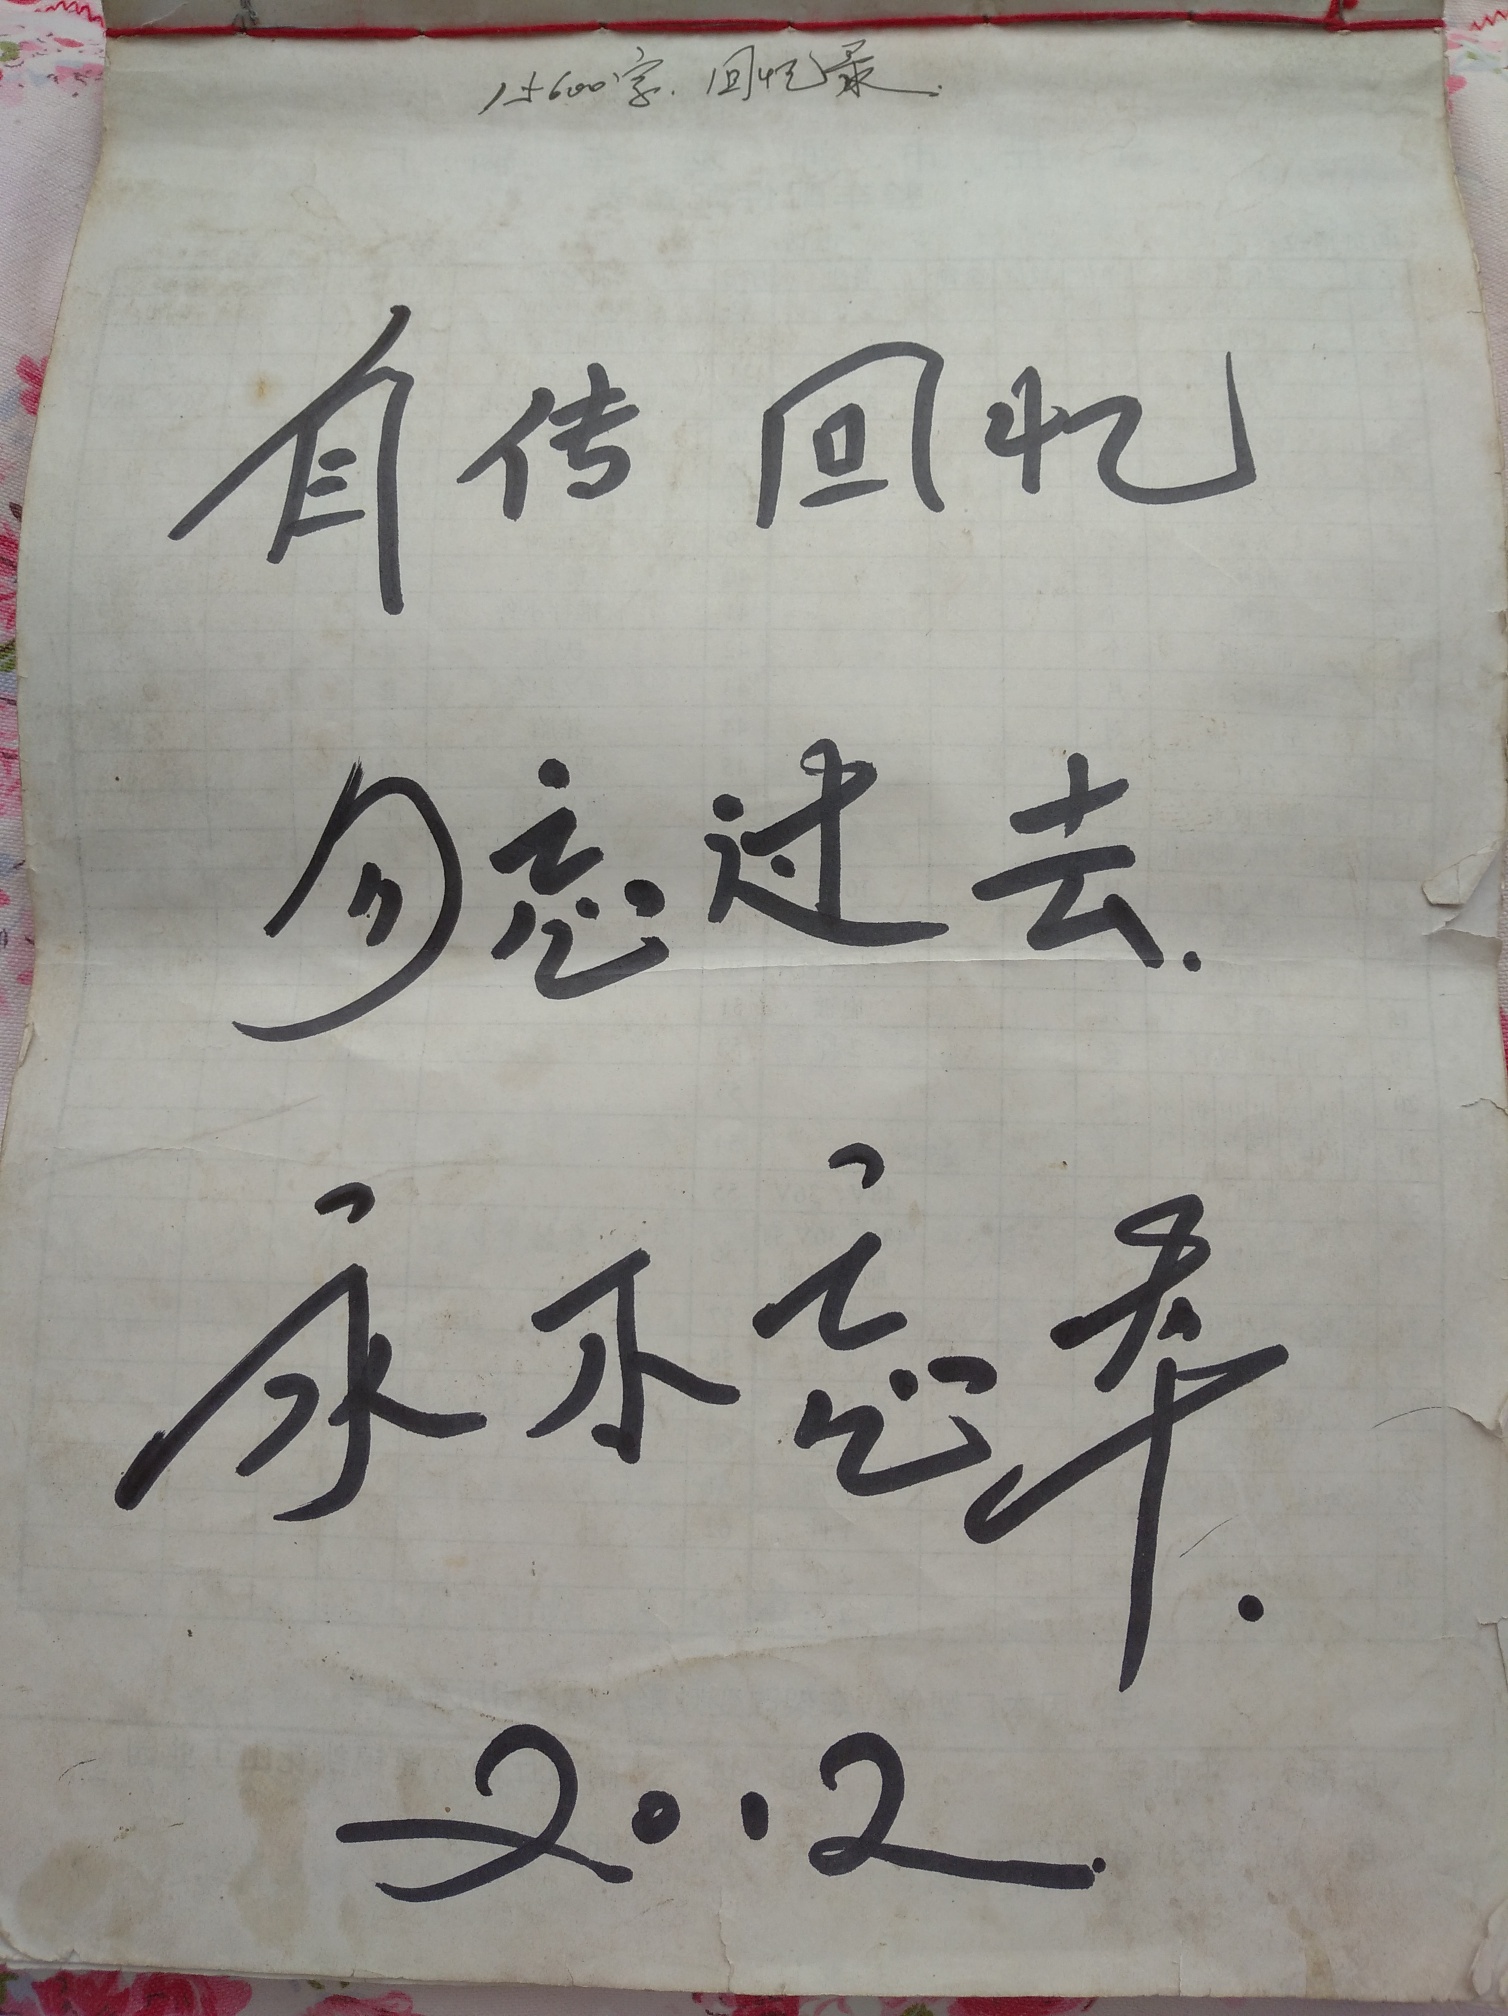 1万600字. 回忆录.
自传 回忆
勿忘过去.
永不忘本.
2012.